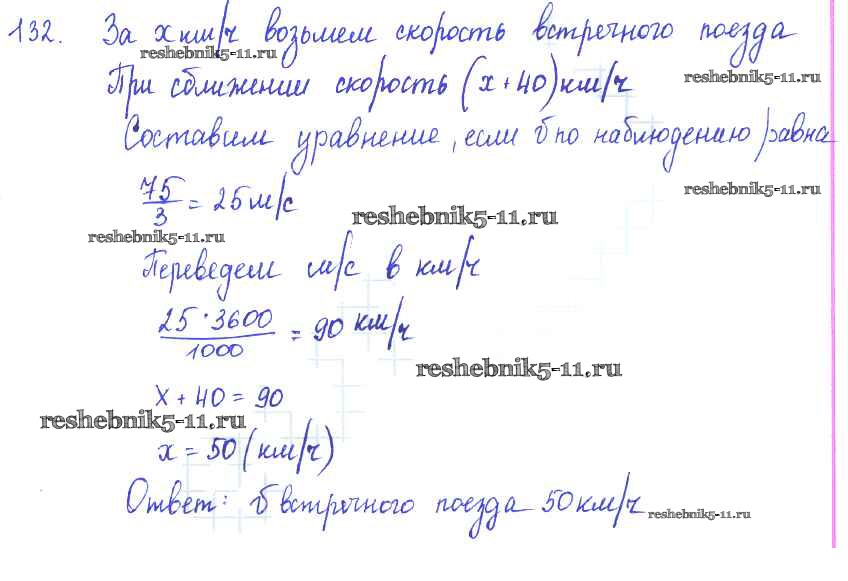 132. За x км/ч возьмем скорость встречного поезда
reshebnik5-11.ru
При сближении скорость (x + 40) км/ч
reshebnik5-11.ru
Составим уравнение, если б по наблюдению равна
75/3 = 25 м/с
reshebnik5-11.ru
reshebnik5-11.ru
reshebnik5-11.ru
Переведем м/с в км/ч
25 · 3600 / 1000 = 90 км/ч
reshebnik5-11.ru
x + 40 = 90
reshebnik5-11.ru
x = 50 (км/ч)
Ответ: б встречного поезда 50 км/ч
reshebnik5-11.ru